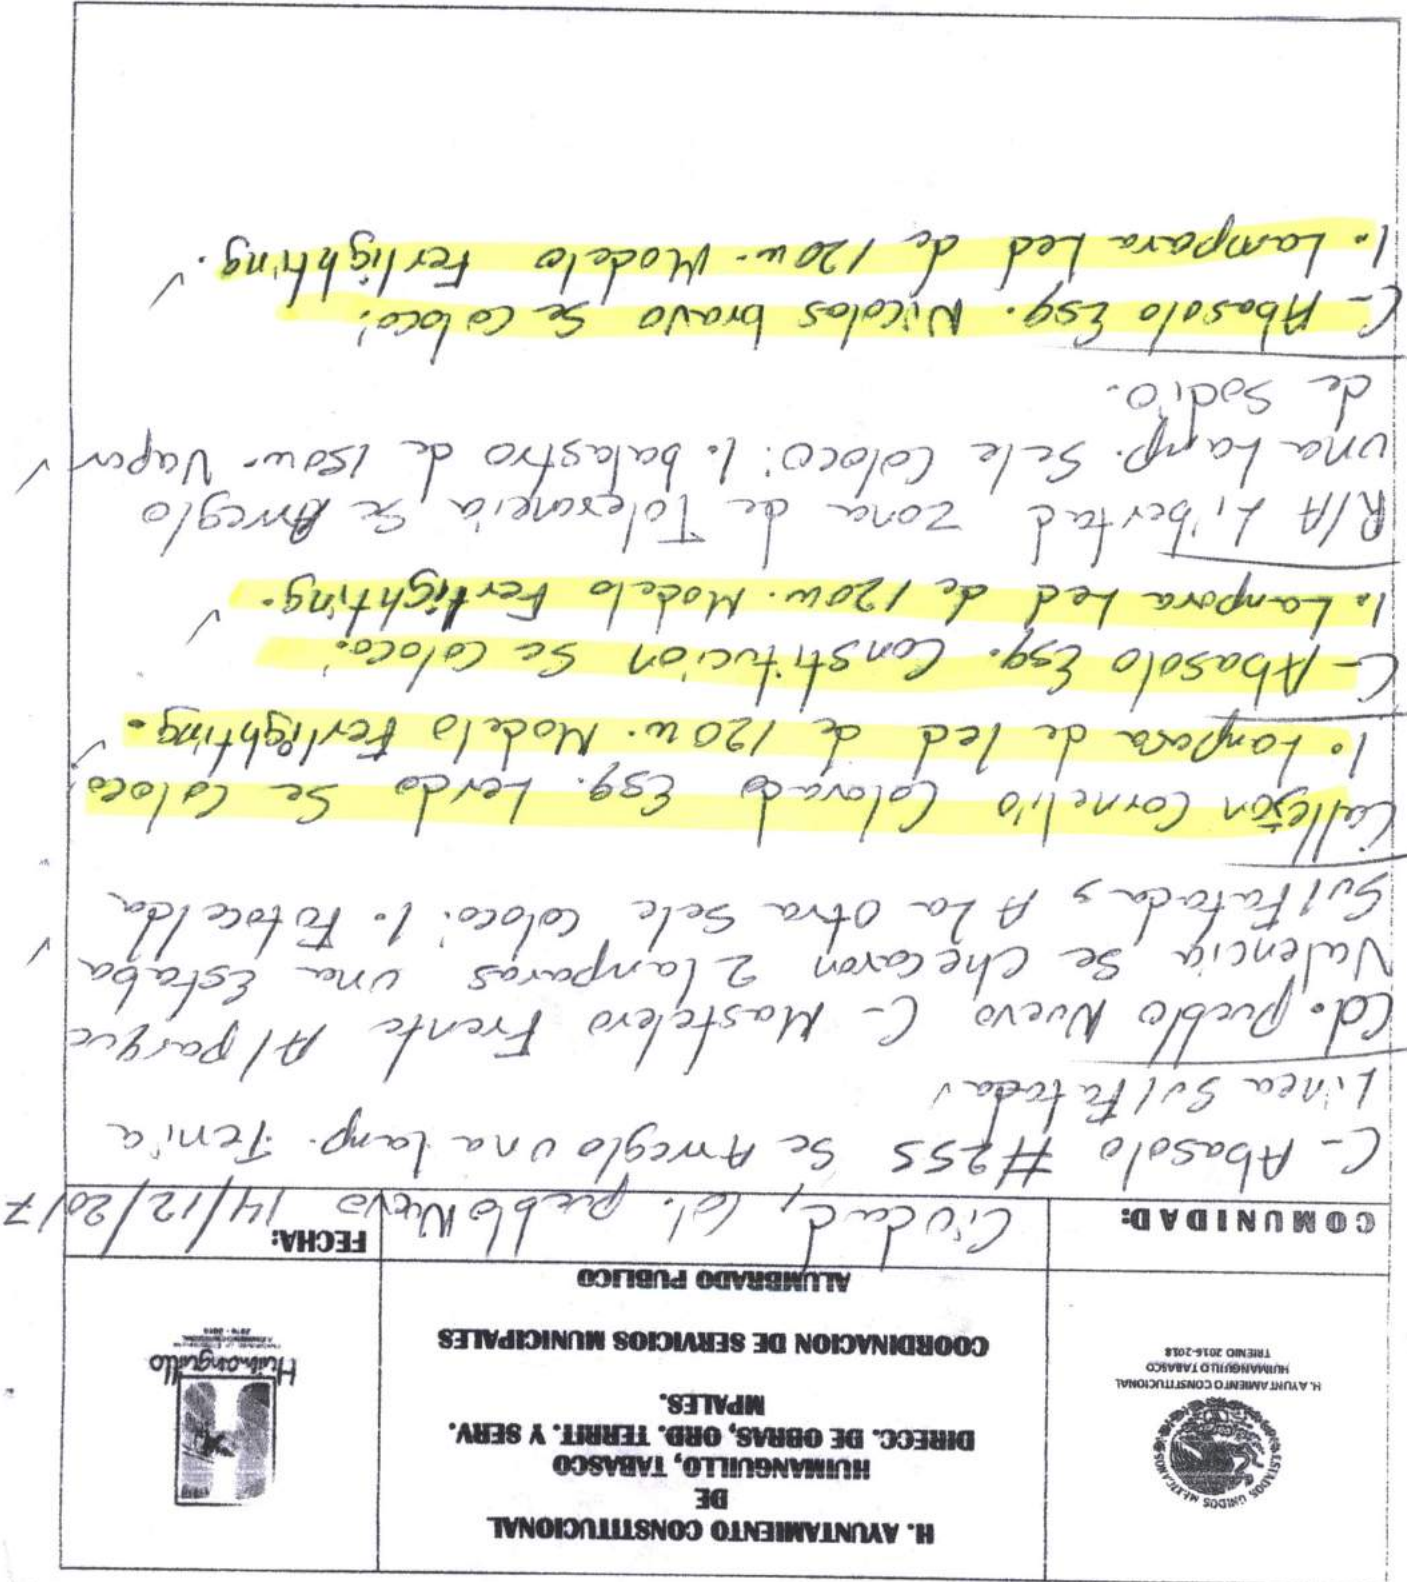 ESTADOS UNIDOS MEXICANOS
H. AYUNTAMIENTO CONSTITUCIONAL
HUIMANGUILLO TABASCO
TRIENIO 2016-2018
H. AYUNTAMIENTO CONSTITUCIONAL
DE
HUIMANGUILLO, TABASCO
DIRECC. DE OBRAS, ORD. TERRIT. Y SERV.
MPALES.
COORDINACION DE SERVICIOS MUNICIPALES
ALUMBRADO PUBLICO
Huimanguillo
2016 - 2018
COMUNIDAD:
Ciudad, Col. pueblo Nuevo
FECHA:
14/12/2017
C- Abasolo #255 Se Arreglo una lamp. Tenia
Linea Sulfatada,
Col. pueblo Nuevo C- Mastelero Frente Al parque
Valencia se checaron 2 lamparas una Estaba
Sulfatada y A La Otra Sele coloco: 1. Fotocelda
Callejon Cornelio Colorado Esq. Lerdo Se Coloco:
1. Lampara de led de 120w. Modelo Ferlighting.
C- Abasolo Esq. Constitucion Se Coloco:
1. Lampara Led de 120w. Modelo Ferlighting.
R/A Libertad zona de Tolerancia Se Arreglo
una Lamp. Sele Coloco: 1. balastro de 150w. Vapor
de Sodio.
C- Abasolo Esq. Nicolas bravo Se Coloco:
1. Lampara Led de 120w. Modelo Ferlighting.